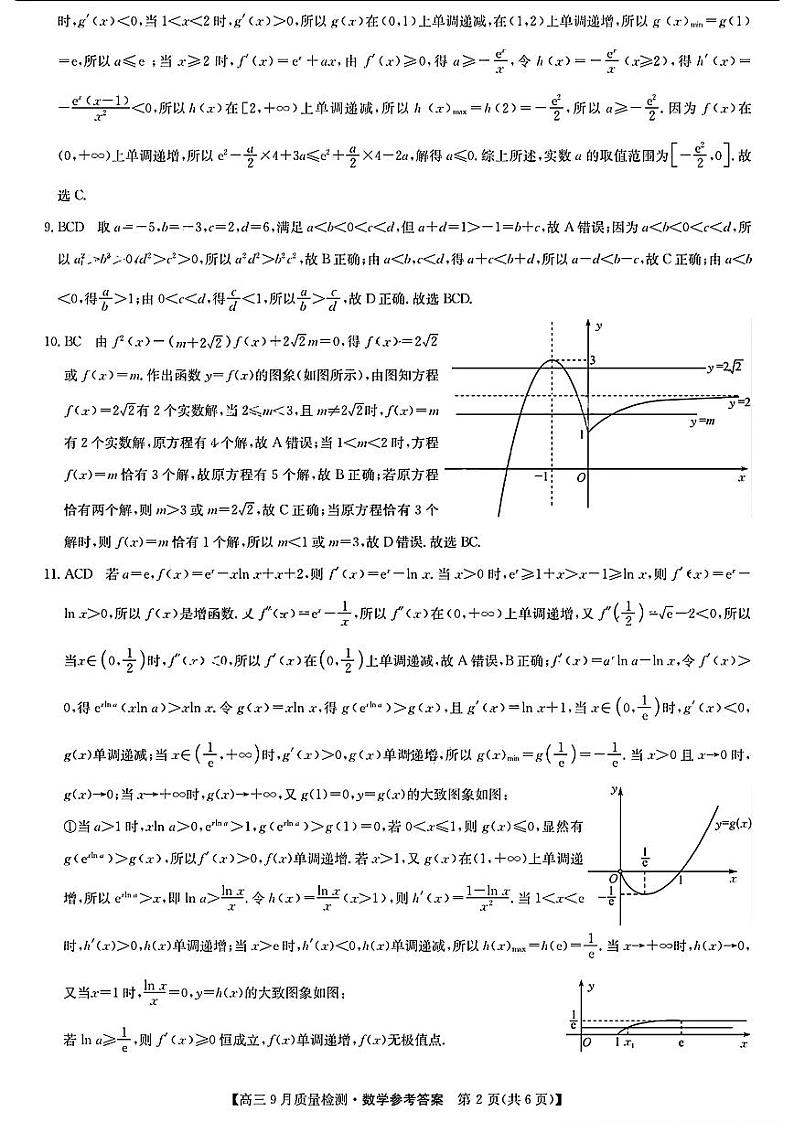 时,g′(x)<0,当1<x<2时,g′(x)>0,所以g(x)在(0,1)上单调递减,在(1,2)上单调递增,所以g(x)min=g(1)
=e,所以a≤e;当x≥2时,f′(x)=eˣ+ax,由f′(x)≥0,得a≥-eˣ/x,令h(x)=-eˣ/x(x≥2),得h′(x)=
-eˣ(x-1)/x²<0,所以h(x)在[2,+∞)上单调递减,所以h(x)max=h(2)=-e²/2,所以a≥-e²/2.因为f(x)在
(0,+∞)上单调递增,所以e²-a/2×4+3a≤e²+a/2×4-2a,解得a≤0.综上所述,实数a的取值范围为[-e²/2,0].故
选C.
9.BCD 取a=-5,b=-3,c=2,d=6,满足a<b<0<c<d,但a+d=1>-1=b+c,故A错误;因为a<b<0<c<d,所
以a²>b²>0,d²>c²>0,所以a²d²>b²c²,故B正确;由a<b,c<d,得a+c<b+d,所以a-d<b-c,故C正确;由a<b
<0,得a/b>1;由0<c<d,得c/d<1,所以a/b>c/d,故D正确.故选BCD.
10.BC 由f²(x)-(m+2√2)f(x)+2√2m=0,得f(x)=2√2
或f(x)=m.作出函数y=f(x)的图象(如图所示),由图知方程
f(x)=2√2有2个实数解,当2≤m<3,且m≠2√2时,f(x)=m
有2个实数解,原方程有4个解,故A错误;当1<m<2时,方程
f(x)=m恰有3个解,故原方程有5个解,故B正确;若原方程
恰有两个解,则m>3或m=2√2,故C正确;当原方程恰有3个
解时,则f(x)=m恰有1个解,所以m<1或m=3,故D错误.故选BC.
y
3
y=2√2
y=2
y=m
1
-1
O
x
11.ACD 若a=e,f(x)=eˣ-xln x+x+2,则f′(x)=eˣ-ln x.当x>0时,eˣ≥1+x>x-1≥ln x,则f′(x)=eˣ-
ln x>0,所以f(x)是增函数.又f″(x)=eˣ-1/x,所以f″(x)在(0,+∞)上单调递增,又f″(1/2)=√e-2<0,所以
当x∈(0,1/2)时,f″(x)<0,所以f′(x)在(0,1/2)上单调递减,故A错误,B正确;f′(x)=aˣln a-ln x,令f′(x)>
0,得e^(xln a)(xln a)>xln x.令g(x)=xln x,得g(e^(xln a))>g(x),且g′(x)=ln x+1,当x∈(0,1/e)时,g′(x)<0,
g(x)单调递减;当x∈(1/e,+∞)时,g′(x)>0,g(x)单调递增,所以g(x)min=g(1/e)=-1/e.当x>0且x→0时,
g(x)→0;当x→+∞时,g(x)→+∞,又g(1)=0,y=g(x)的大致图象如图:
①当a>1时,xln a>0,e^(xln a)>1,g(e^(xln a))>g(1)=0,若0<x≤1,则g(x)≤0,显然有
g(e^(xln a))>g(x),所以f′(x)>0,f(x)单调递增.若x>1,又g(x)在(1,+∞)上单调递
增,所以e^(xln a)>x,即ln a>ln x/x.令h(x)=ln x/x(x>1),则h′(x)=(1-ln x)/x².当1<x<e
y
y=g(x)
1/e
O
1
x
-1/e
时,h′(x)>0,h(x)单调递增;当x>e时,h′(x)<0,h(x)单调递减,所以h(x)max=h(e)=1/e.当x→+∞时,h(x)→0,
又当x=1时,ln x/x=0,y=h(x)的大致图象如图:
若ln a≥1/e,则f′(x)≥0恒成立,f(x)单调递增,f(x)无极值点.
y
1/e
O
1
x₁
e
x
【高三9月质量检测·数学参考答案 第2页(共6页)】